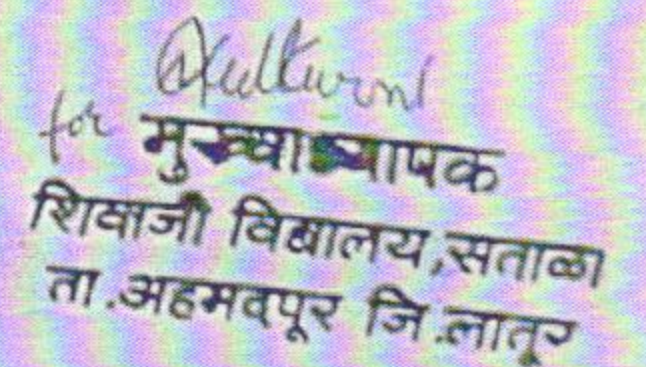 for मुख्याध्यापक
शिवाजी विद्यालय,सताळा
ता.अहमदपूर जि.लातूर